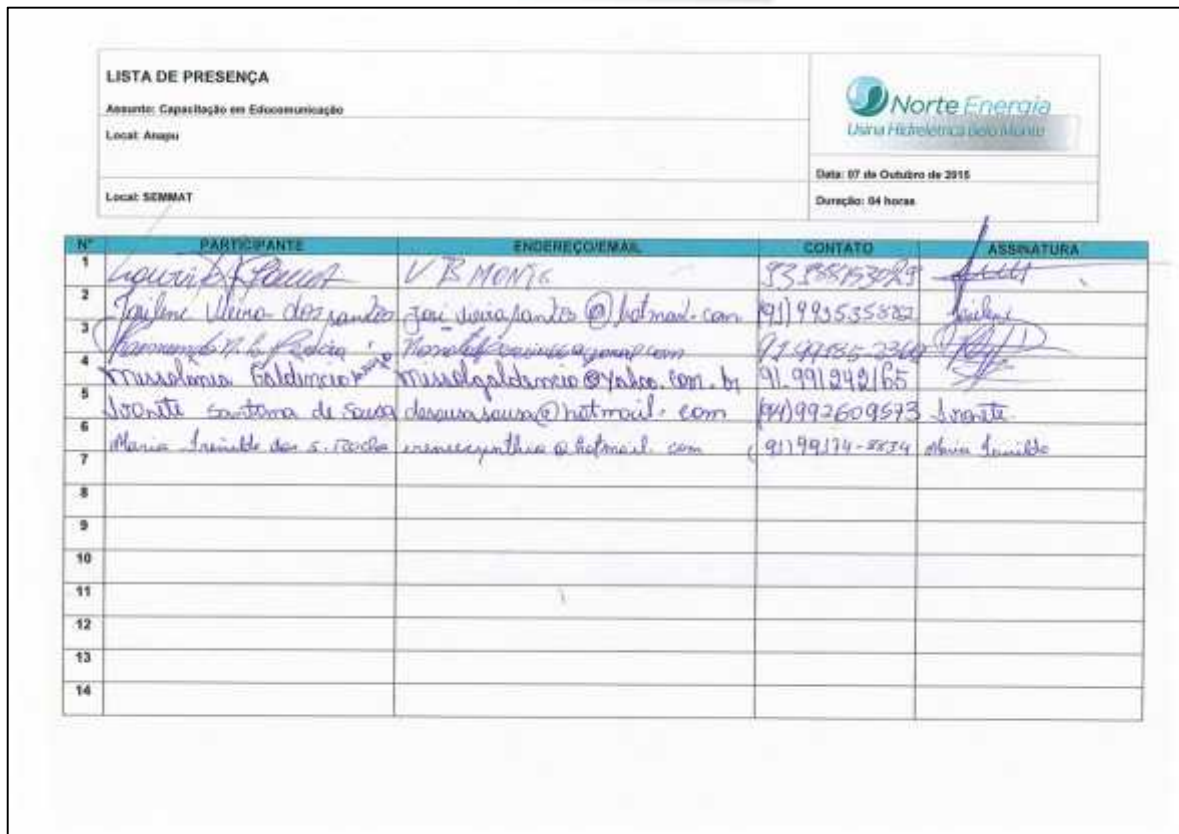 LISTA DE PRESENÇA
Assunto: Capacitação em Educomunicação
Local: Anapu
Local: SEMMAT
Norte Energia
Usina Hidrelétrica Belo Monte
Data: 07 de Outubro de 2015
Duração: 04 horas
Nº PARTICIPANTE ENDEREÇO/EMAIL CONTATO ASSINATURA
1 V B MONTE
2 Jailene Vieira dos santos @hotmail.com Jailene
3
4 Missolania Galdencio missolgaldencio@yahoo.com.br 91.991242165
5 Ivonete santana de Sousa desousasousa@hotmail.com (94)992609573 Ivonete
6 Maria Irenilde dos S. Rocha irenecynthia@hotmail.com Maria Irenilde
7
8
9
10
11
12
13
14